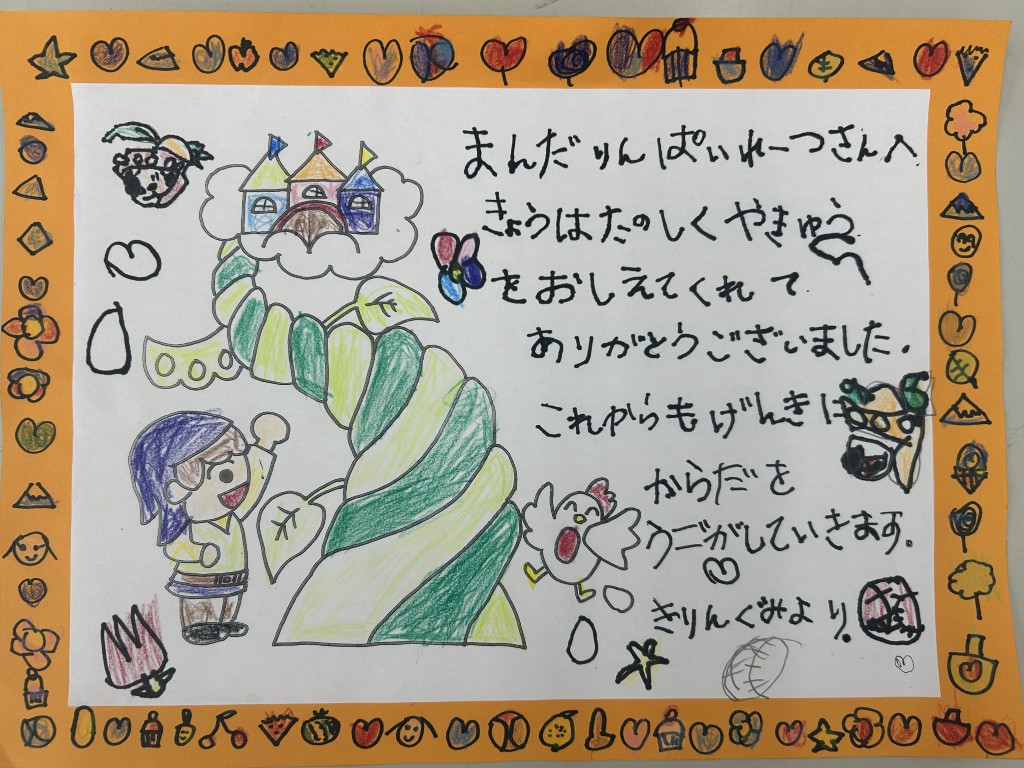 まんだりんぱいれーつさんへ
きょうはたのしくやきゅう
をおしえてくれて
ありがとうございました。
これからもげんきに
からだを
うごがしていきます。
きりんぐみより